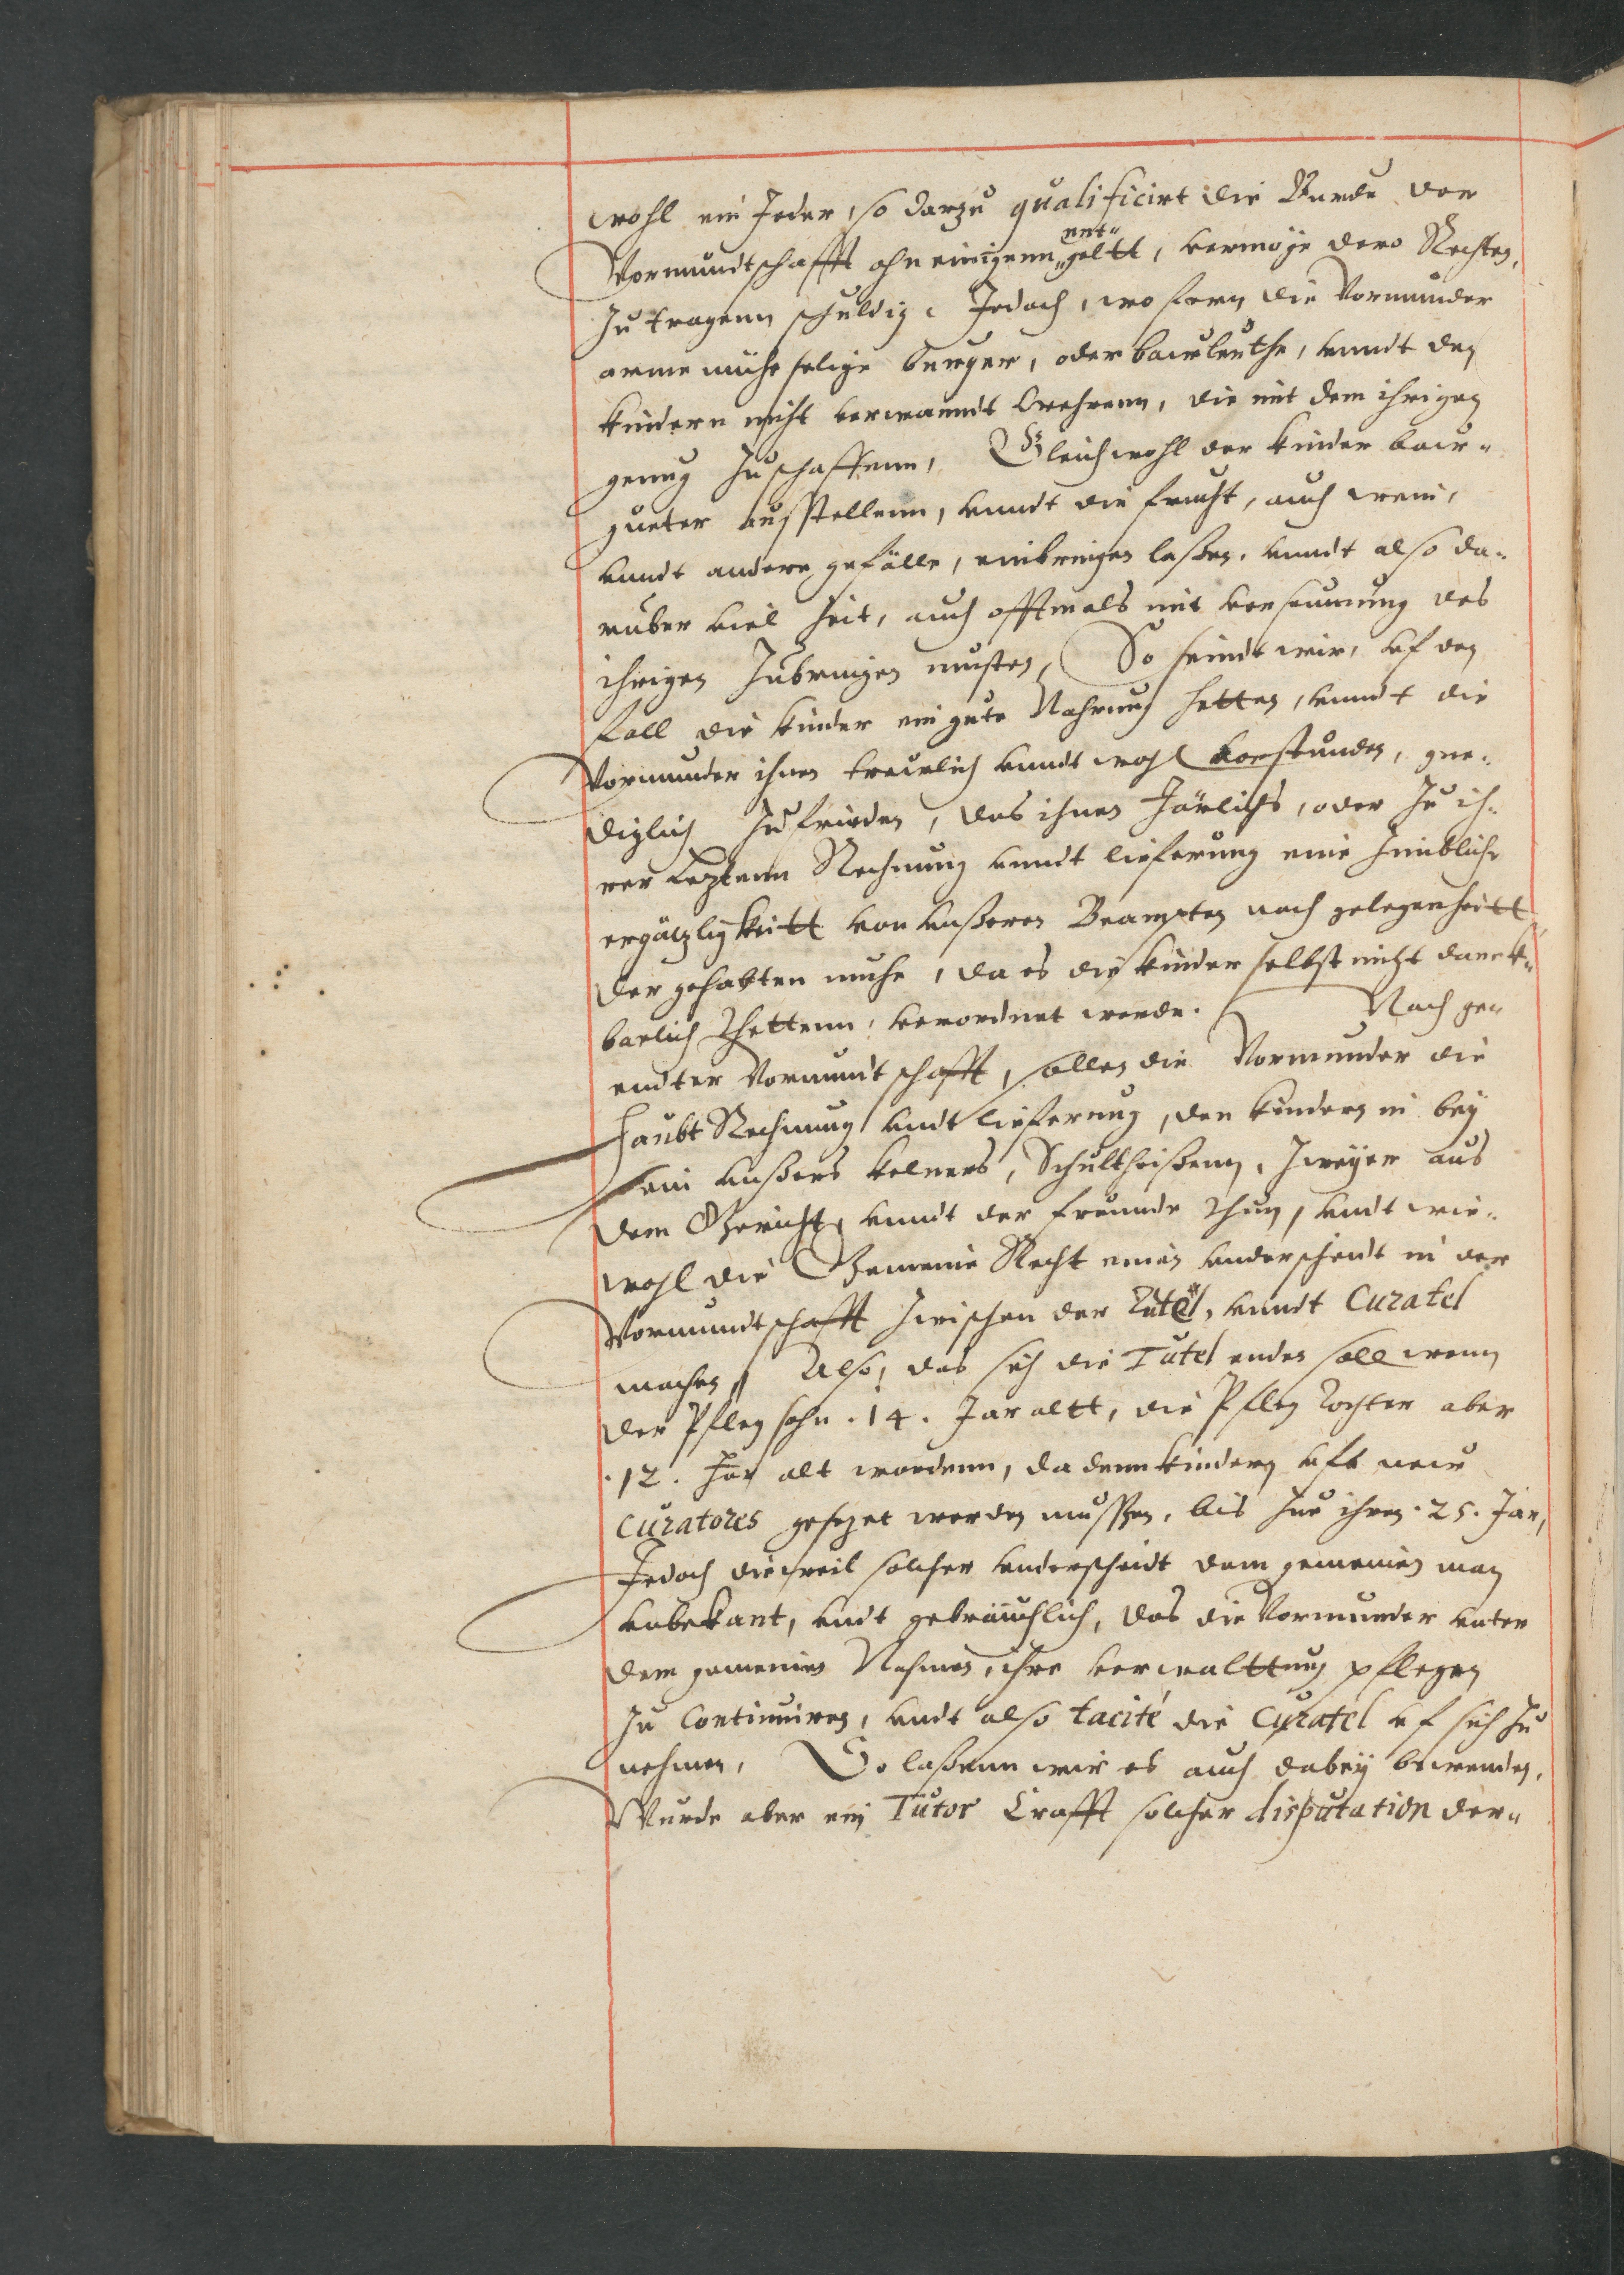 wohl ein Jeder, so darzu qualificirt die Burde der
Vormundtschafft ohn einigenn entgeltt, vermöge dero Rechten,
zu tragenn schuldig. Jedoch, wo fern die Vormunder
arme mühe selige burger, oder bawleuthe, vnndt den
kindern nicht verwanndt wehrenn, die mit dem ihrigen
genug zuschaffenn, Gleichwohl der kinder baw-
gueter ausstellenn, vnndt die frucht, auch wein,
vnndt andere gefälle, einbringen laßen, vnndt also da-
rüber viel Zeit, auch offtmals mit verseumung des
ihrigen Zubringen musten, So seindt wir, vf den
fall die kinder ein gute Nahrung hetten, vnndt die
Vormunder ihnen trewlich vnndt wohl vorstunden, gne-
diglich zufrieden, das ihnen Järlichs, oder zu ih-
rer Leztenn Rechnung vnndt lieferung eine zimbliche
ergäzligkeitt von vnßeren Beampten nach gelegenheitt
der gehabten muhe, da es die kinder selbst nicht danck-
barlich thettenn, verordnet werde. Nach ge-
endter Vormundtschafft, sollen die Vormunder die
Haubt Rechnung vndt lieferung, den kindern in bey
sein vnßers kelners, Schultheißenn, Zweyer aus
dem Gericht, vnndt der freunde thun, vndt wie-
wohl die Gemeine Recht einen vnderscheidt in der
Vormundtschafft zwischen der Tutel, vnndt Curatel
machen, Also, das sich die Tutel enden soll wenn
der Pfleg sohn .14. Jar altt, die Pfleg Tochter aber
.12. Jar alt wordenn, da denn kindern vfs new
Curatores gesezet werden mussen, bis zue ihren .25. Jar,
Jedoch dieweil solcher vnderscheidt dem gemeinen man
vnbekant, vndt gebräuchlich, das die Vormunder vnter
dem gemeinen Nahmen, ihre verwalttung pflegen
zu Continuiren, vndt also tacité die Curatel vf sich zu
nehmen, So laßenn wir es auch dabey bewenden,
Wurde aber ein Tutor Crafft solcher disputation der-